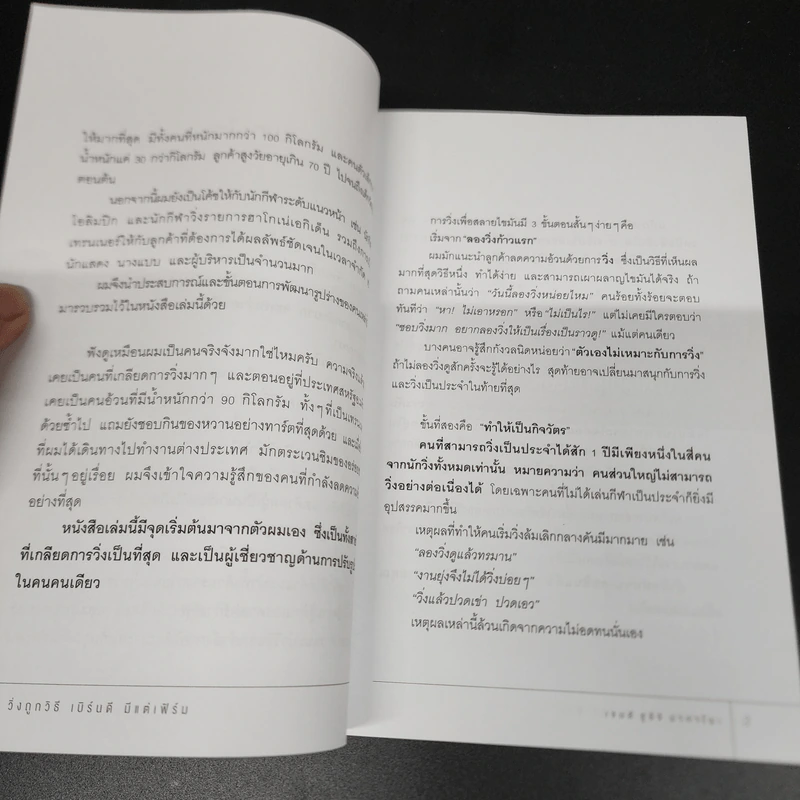 ให้มากที่สุด มีทั้งคนที่หนักมากกว่า 100 กิโลกรัม และคนตัวเล็ก
น้ำหนักแค่ 30 กว่ากิโลกรัม ลูกค้าสูงวัยอายุเกิน 70 ปี ไปจนถึงเด็ก
ตอนต้น
นอกจากนี้ผมยังเป็นโค้ชให้กับนักกีฬาระดับแนวหน้า เช่น
โอลิมปิก และนักกีฬาวิ่งรายการฮาโกเน่เอกิเด็น รวมถึง
เทรนเนอร์ให้กับลูกค้าที่ต้องการได้ผลลัพธ์ชัดเจนในเวลาจำกัด
นักแสดง นางแบบ และผู้บริหารเป็นจำนวนมาก
ผมจึงนำประสบการณ์และขั้นตอนการพัฒนารูปร่างของคน
มารวบรวมไว้ในหนังสือเล่มนี้ด้วย
ฟังดูเหมือนผมเป็นคนจริงจังมากใช่ไหมครับ ความจริง
เคยเป็นคนที่เกลียดการวิ่งมากๆ และตอนอยู่ที่ประเทศสหรัฐ
เคยเป็นคนอ้วนที่มีน้ำหนักกว่า 90 กิโลกรัม ทั้งๆ ที่เป็น
ด้วยซ้ำไป แถมยังชอบกินของหวานอย่างทาร์ตที่สุดด้วย และ
ที่ผมได้เดินทางไปทำงานต่างประเทศ มักตระเวนชิมของอร่อย
ที่นั้นๆ อยู่เรื่อย ผมจึงเข้าใจความรู้สึกของคนที่กำลังลดความ
อย่างที่สุด
หนังสือเล่มนี้มีจุดเริ่มต้นมาจากตัวผมเอง ซึ่งเป็นทั้ง
ที่เกลียดการวิ่งเป็นที่สุด และเป็นผู้เชี่ยวชาญด้านการปรับ
ในคนคนเดียว
วิ่งถูกวิธี เบิร์นดี มีแต่เฟิร์ม
การวิ่งเพื่อสลายไขมันมี 3 ขั้นตอนสั้นๆ ง่ายๆ คือ
เริ่มจาก "ลองวิ่งก้าวแรก"
ผมมักแนะนำลูกค้าลดความอ้วนด้วยการวิ่ง ซึ่งเป็นวิธีที่เห็นผล
มากที่สุดวิธีหนึ่ง ทำได้ง่าย และสามารถเผาผลาญไขมันได้จริง ถ้า
ถามคนเหล่านั้นว่า "วันนี้ลองวิ่งหน่อยไหม" คนร้อยทั้งร้อยจะตอบ
ทันทีว่า "หา! ไม่เอาหรอก" หรือ "ไม่เป็นไร!" แต่ไม่เคยมีใครตอบว่า
"ชอบวิ่งมาก อยากลองวิ่งให้เป็นเรื่องเป็นราวดู!" แม้แต่คนเดียว
บางคนอาจรู้สึกกังวลนิดหน่อยว่า "ตัวเองไม่เหมาะกับการวิ่ง"
ถ้าไม่ลองวิ่งดูสักครั้งจะรู้ได้อย่างไร สุดท้ายอาจเปลี่ยนมาสนุกกับการวิ่ง
และวิ่งเป็นประจำในท้ายที่สุด
ขั้นที่สองคือ "ทำให้เป็นกิจวัตร"
คนที่สามารถวิ่งเป็นประจำได้สัก 1 ปีมีเพียงหนึ่งในสี่คน
จากนักวิ่งทั้งหมดเท่านั้น หมายความว่า คนส่วนใหญ่ไม่สามารถ
วิ่งอย่างต่อเนื่องได้ โดยเฉพาะคนที่ไม่ได้เล่นกีฬาเป็นประจำก็ยิ่งมี
อุปสรรคมากขึ้น
เหตุผลที่ทำให้คนเริ่มวิ่งล้มเลิกกลางคันมีมากมาย เช่น
"ลองวิ่งดูแล้วทรมาน"
"งานยุ่งจึงไม่ได้วิ่งบ่อยๆ"
"วิ่งแล้วปวดเข่า ปวดเอว"
เหตุผลเหล่านี้ล้วนเกิดจากความไม่อดทนนั่นเอง